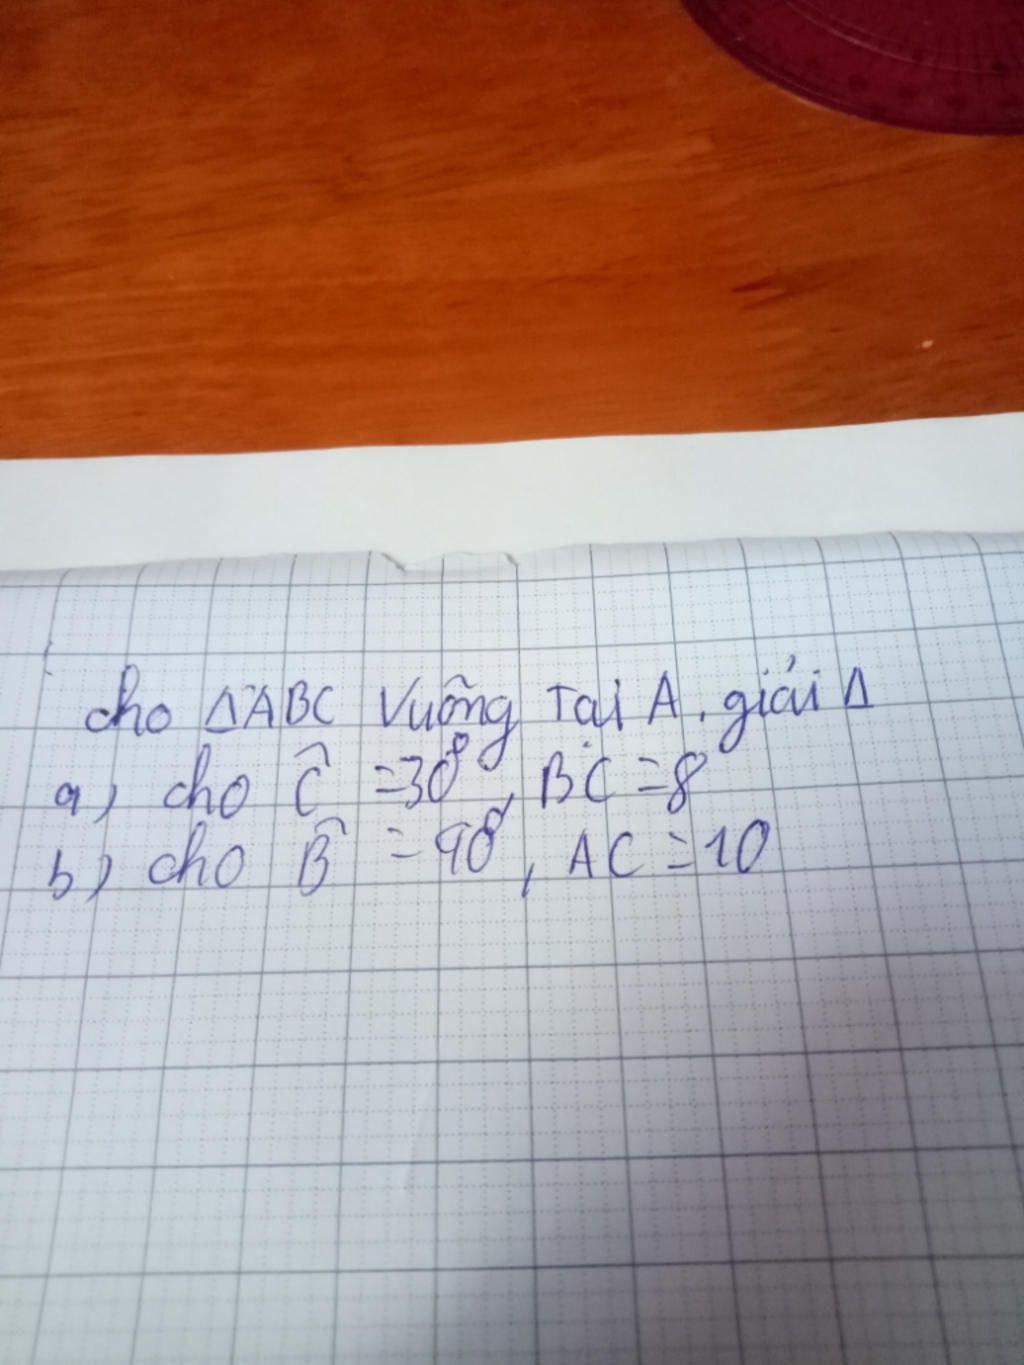 cho ΔABC vuông tại A. giải Δ
a) cho Ĉ = 30⁰, BC = 8
b) cho B̂ = 40⁰, AC = 10